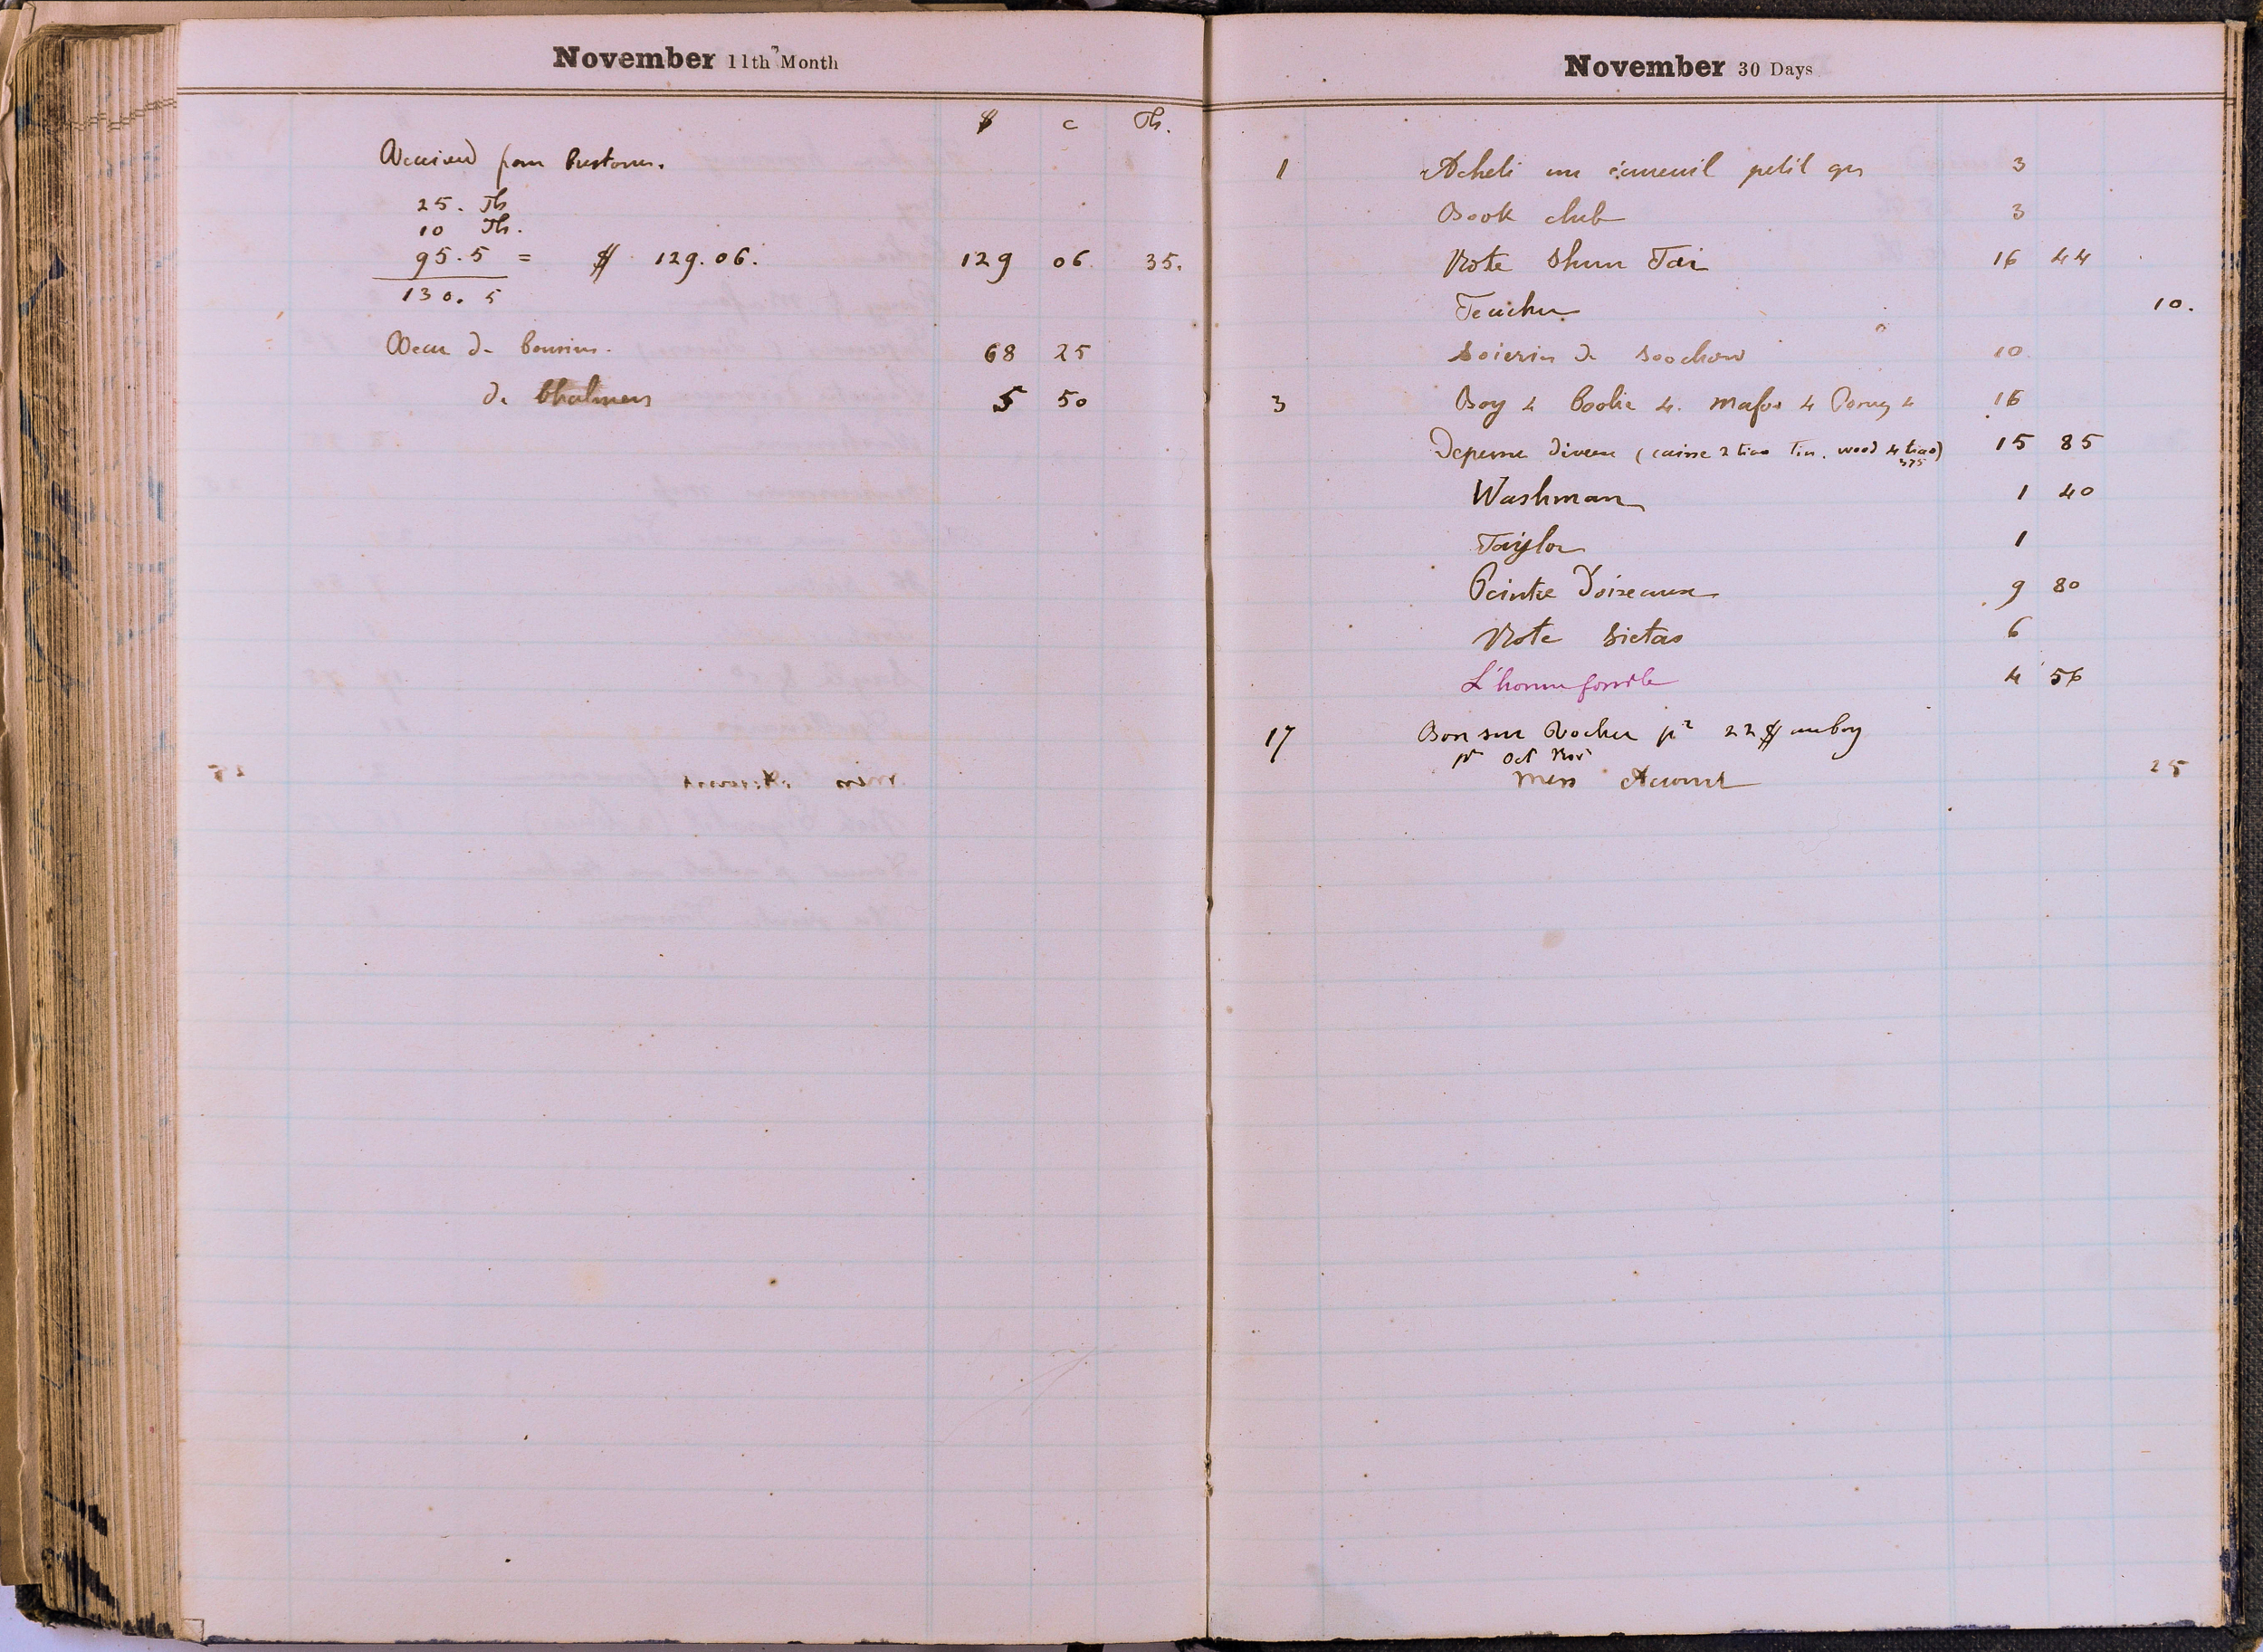 November 11th Month
$ c Th.
Received from Customs.
25. Th
10 Th.
95.5 = $ 129.06. 129 06 35.
130.5
Recu de 68 25
de Chalmers 5 50
November 30 Days
1 Acheté un écureuil petit gris 3
Book club 3
Note Shun Tai 16 44
Teacher 10.
Soieries de Soochow 10
3 Boy 4 Coolie 4. Mafoo 4 Poney 4 16
Depense diverse (caisse 2 tiao Tin. wood 4 tiao) 15 85
375
Washman 1 40
Taylor 1
Peintre d'oiseaux 9 80
Note Sietas 6
L'homme fossile 4 56
17 Bon sur Rocher pr 22 $ au boy
pr Oct Nov
Mess Account 25